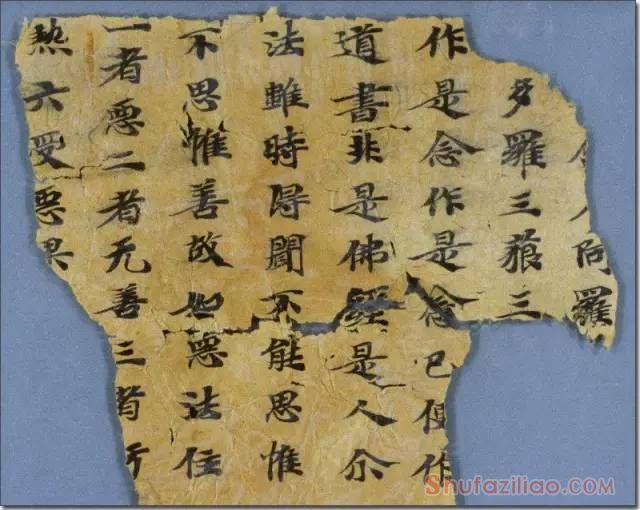 人阿羅
多羅三藐三
作是念作是念已便作
道書非是佛經是人尒
法雖時得聞不能思惟
不思惟善故如惡法住
一者惡二者无善三者
熱六受惡果
Shufaziliao.COM